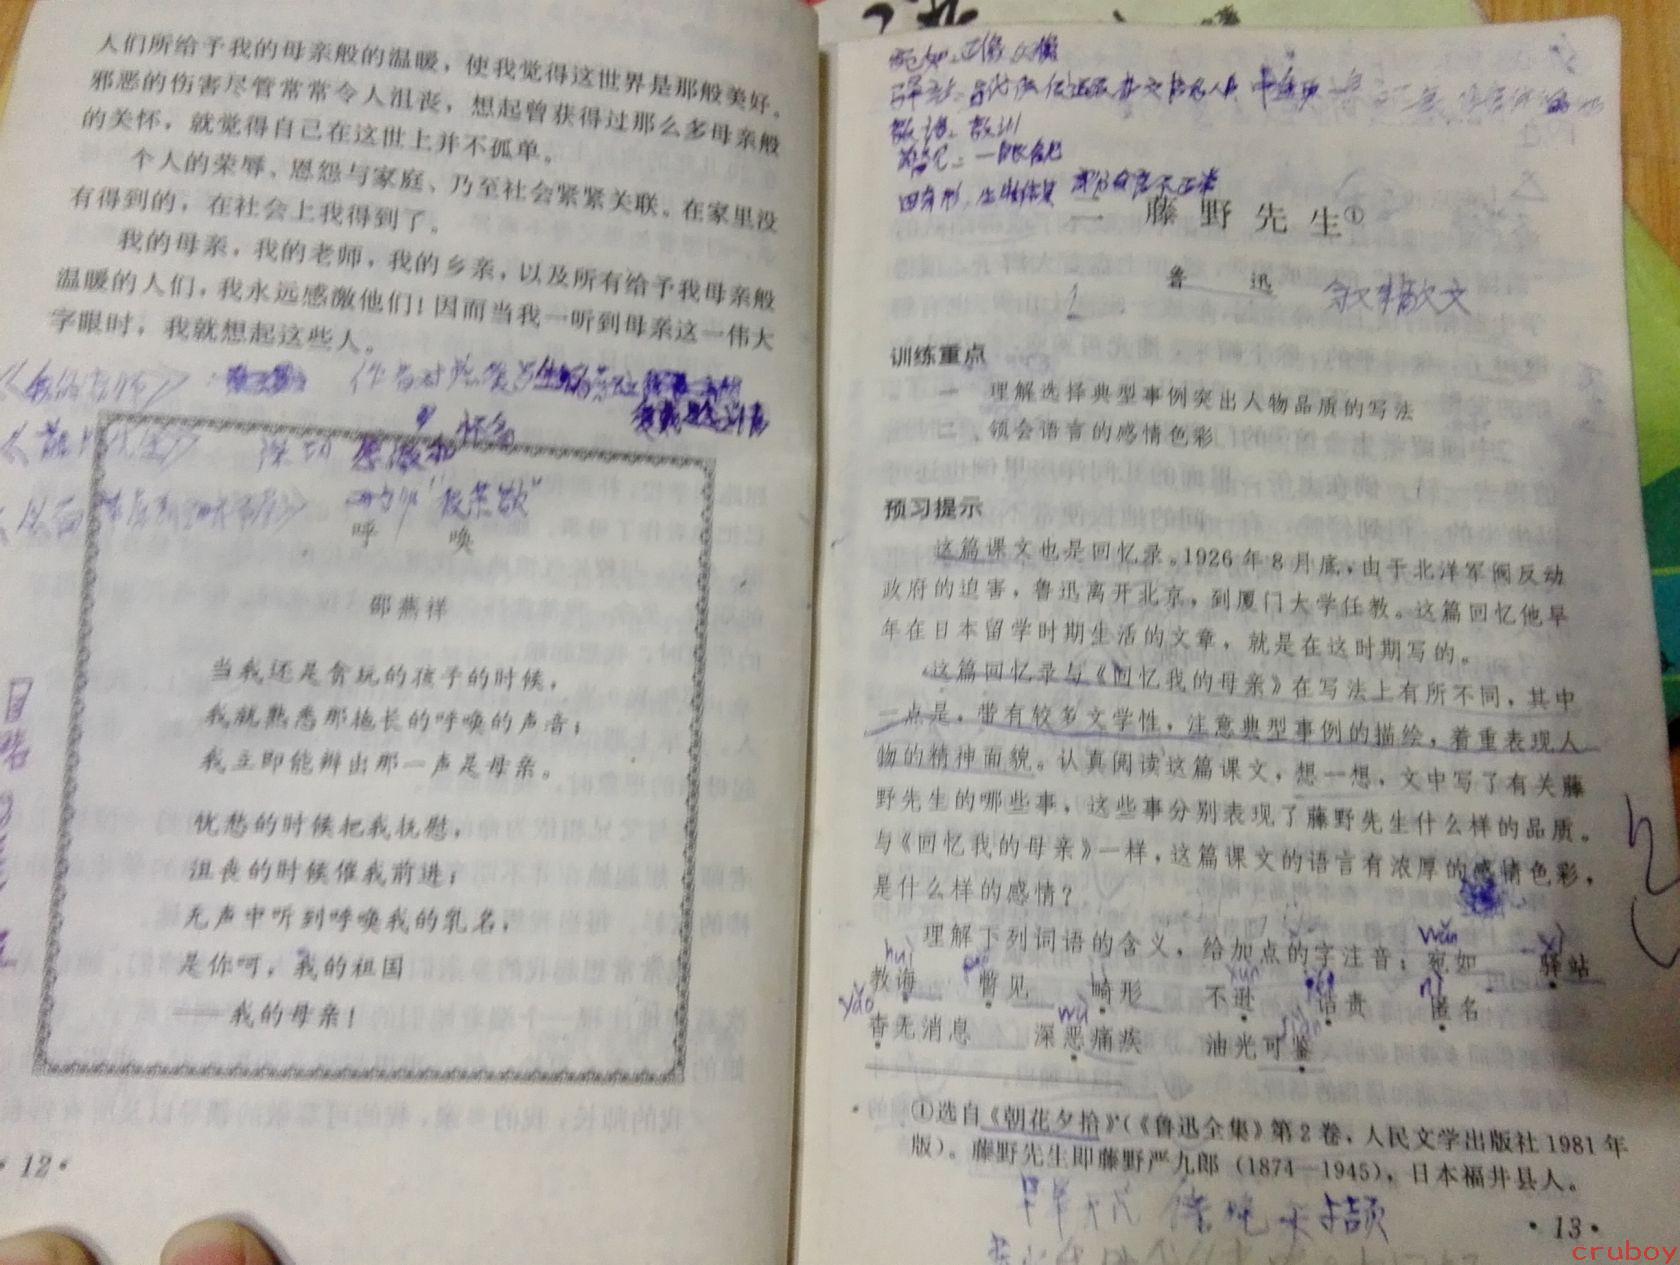 人们所给予我的母亲般的温暖，使我觉得这世界是那般美好。
邪恶的伤害尽管常常令人沮丧，想起曾获得过那么多母亲般
的关怀，就觉得自己在这世上并不孤单。
个人的荣辱、恩怨与家庭、乃至社会紧紧关联。在家里没
有得到的，在社会上我得到了。
我的母亲，我的老师，我的乡亲，以及所有给予我母亲般
温暖的人们，我永远感激他们！因而当我一听到母亲这一伟大
字眼时，我就想起这些人。
作者对
怀念
深切 感激和
呼 唤
邵燕祥
当我还是贪玩的孩子的时候，
我就熟悉那拖长的呼唤的声音；
我立即能辨出那一声是母亲。
忧愁的时候把我抚慰，
沮丧的时候催我前进；
无声中听到呼唤我的乳名，
是你呵，我的祖国
——我的母亲！
·12·
宛如：正像 好像
教诲：教训
瞥见：一眼看见
畸形：生物体某部分发育不正常
二 藤野先生①
鲁 迅
叙事散文
训练重点
一 理解选择典型事例突出人物品质的写法
二 领会语言的感情色彩
预习提示
这篇课文也是回忆录。1926年8月底，由于北洋军阀反动
政府的迫害，鲁迅离开北京，到厦门大学任教。这篇回忆他早
年在日本留学时期生活的文章，就是在这时期写的。
这篇回忆录与《回忆我的母亲》在写法上有所不同，其中
一点是，带有较多文学性，注意典型事例的描绘，着重表现人
物的精神面貌。认真阅读这篇课文，想一想，文中写了有关藤
野先生的哪些事，这些事分别表现了藤野先生什么样的品质。
与《回忆我的母亲》一样，这篇课文的语言有浓厚的感情色彩，
是什么样的感情？
理解下列词语的含义，给加点的字注音：宛如 驿站
wǎn yì
huì piē jī xùn nì
教诲 瞥见 畸形 不逊 诘责 匿名
yǎo wù jiàn
杳无消息 深恶痛疾 油光可鉴
①选自《朝花夕拾》（《鲁迅全集》第2卷，人民文学出版社1981年
版）。藤野先生即藤野严九郎（1874—1945），日本福井县人。
·13·
cruboy